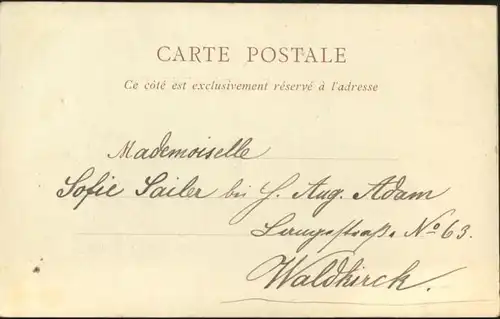 CARTE POSTALE
Ce côté est exclusivement réservé à l'adresse
Mademoiselle
Sofie Sailer bei H. Aug. Adam
No 63.
Waldkirch.